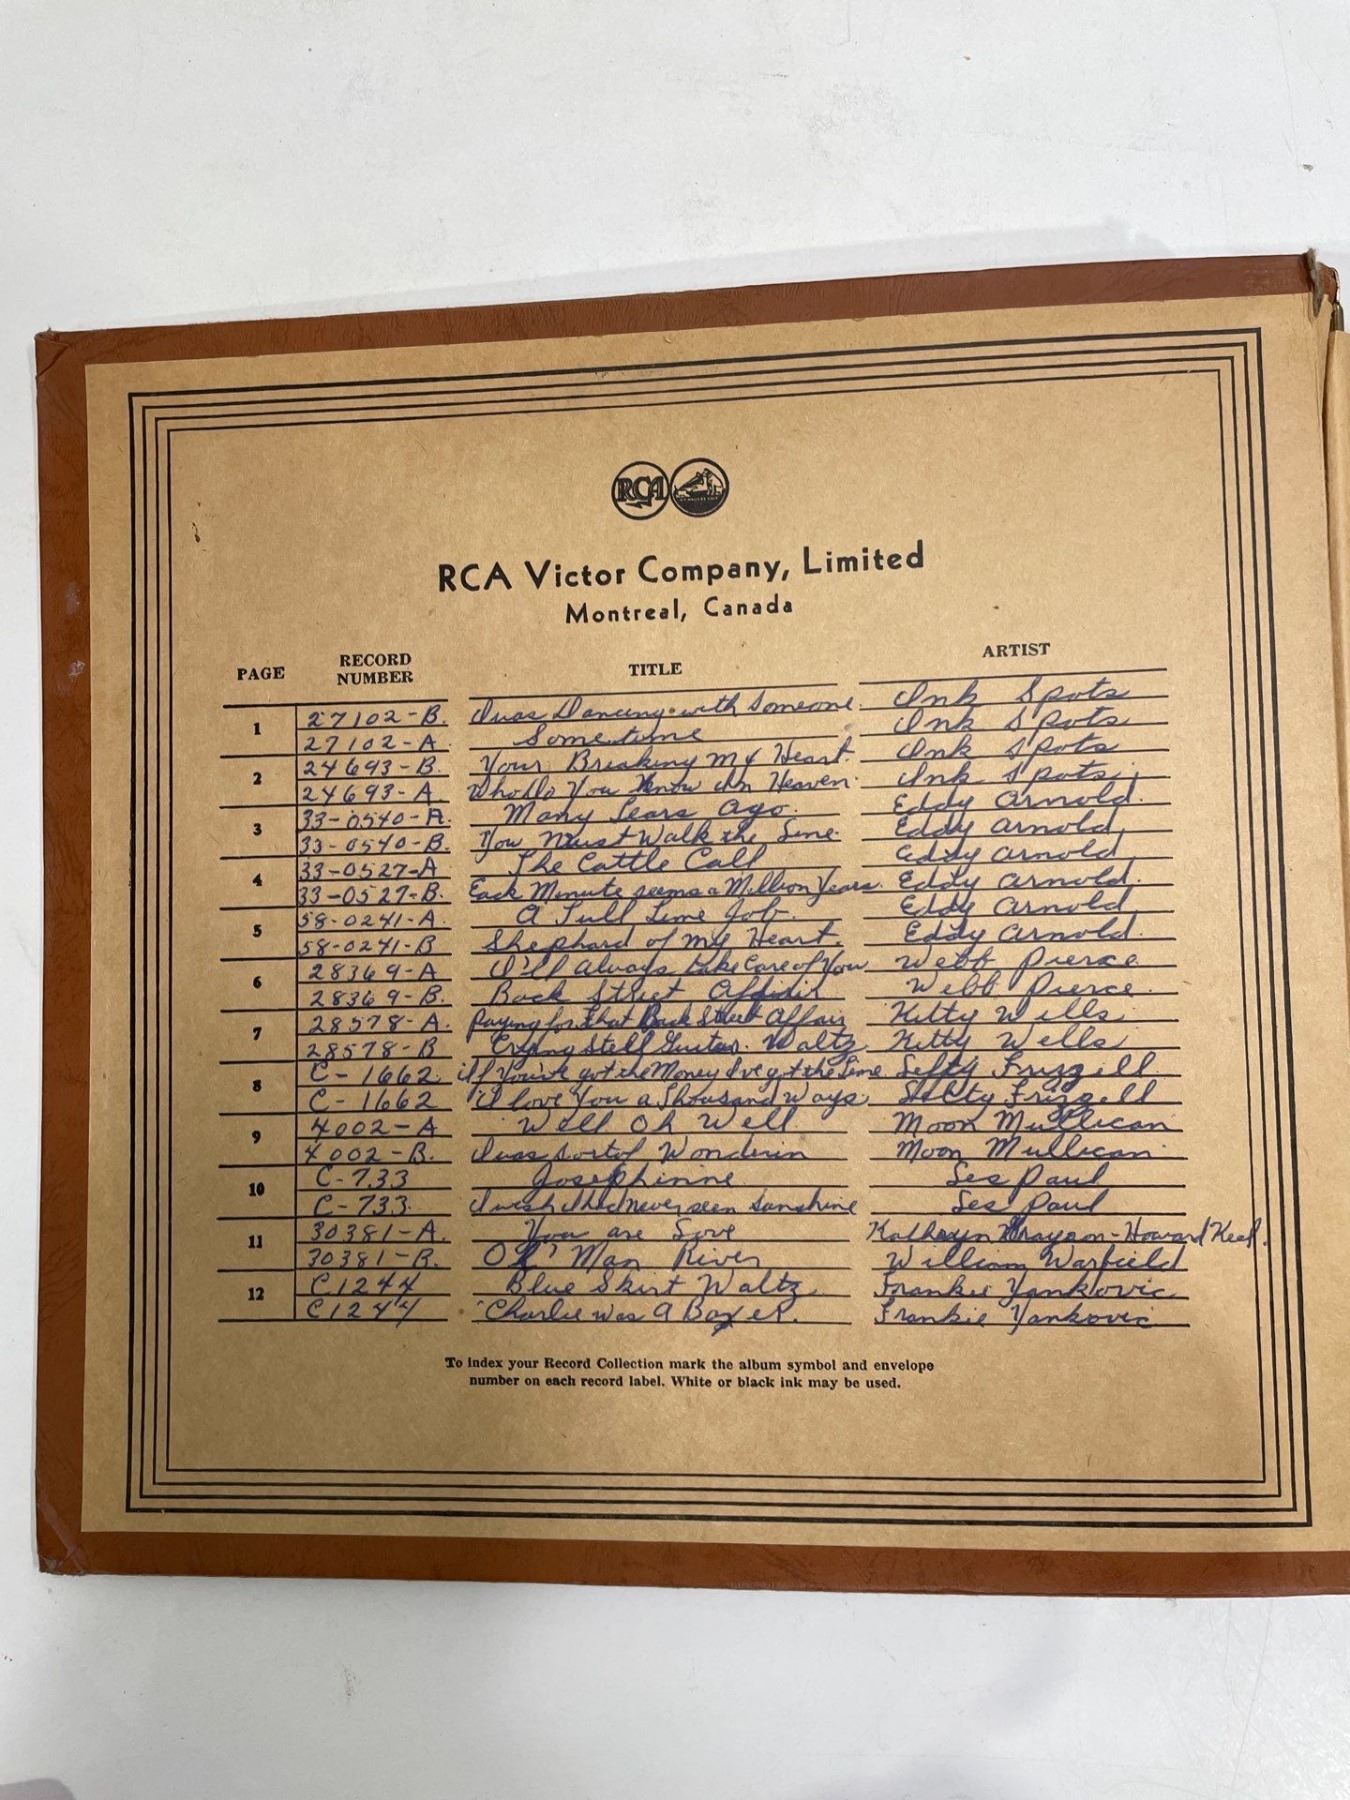 RCA
RCA Victor Company, Limited
Montreal, Canada
PAGE RECORD NUMBER TITLE ARTIST
1 27102-B. I was Dancing with Someone. Ink Spots
27102-A. Sometime Ink Spots
2 24693-B. Your Breaking My Heart. Ink Spots
24693-A. Who Do You Know In Heaven. Ink Spots.
3 33-0540-A. Many Tears Ago. Eddy Arnold.
33-0540-B. You Must Walk the Line. Eddy Arnold.
4 33-0527-A The Cattle Call Eddy Arnold
33-0527-B. Each Minute seems a Million Years. Eddy Arnold.
5 58-0241-A. A Full Time Job. Eddy Arnold
58-0241-B Shephard of my Heart. Eddy Arnold.
6 28369-A I'll Always take Care of You Webb Pierce
28369-B. Back Street Affair Webb Pierce.
7 28578-A. Paying for that Back Street Affair Kitty Wells.
28578-B Crying Steel Guitar. Waltz Kitty Wells
8 C-1662. if You've got the Money I've got the Time Lefty Frizzell
C-1662 I love You a Thousand Ways. Lefty Frizzell
9 4002-A Well Oh Well Moon Mullican
4002-B. I was Sort of Wonderin Moon Mullican.
10 C-733 Josephinne Les Paul
C-733. I wish I had never seen Sunshine Les Paul
11 30381-A. You are Love Kathryn Grayson-Howard Keel.
30381-B. Ol' Man River William Warfield
12 C1244 Blue Skirt Waltz Frankie Yankovic
C1244 Charlie was A Boxer. Frankie Yankovic
To index your Record Collection mark the album symbol and envelope
number on each record label. White or black ink may be used.